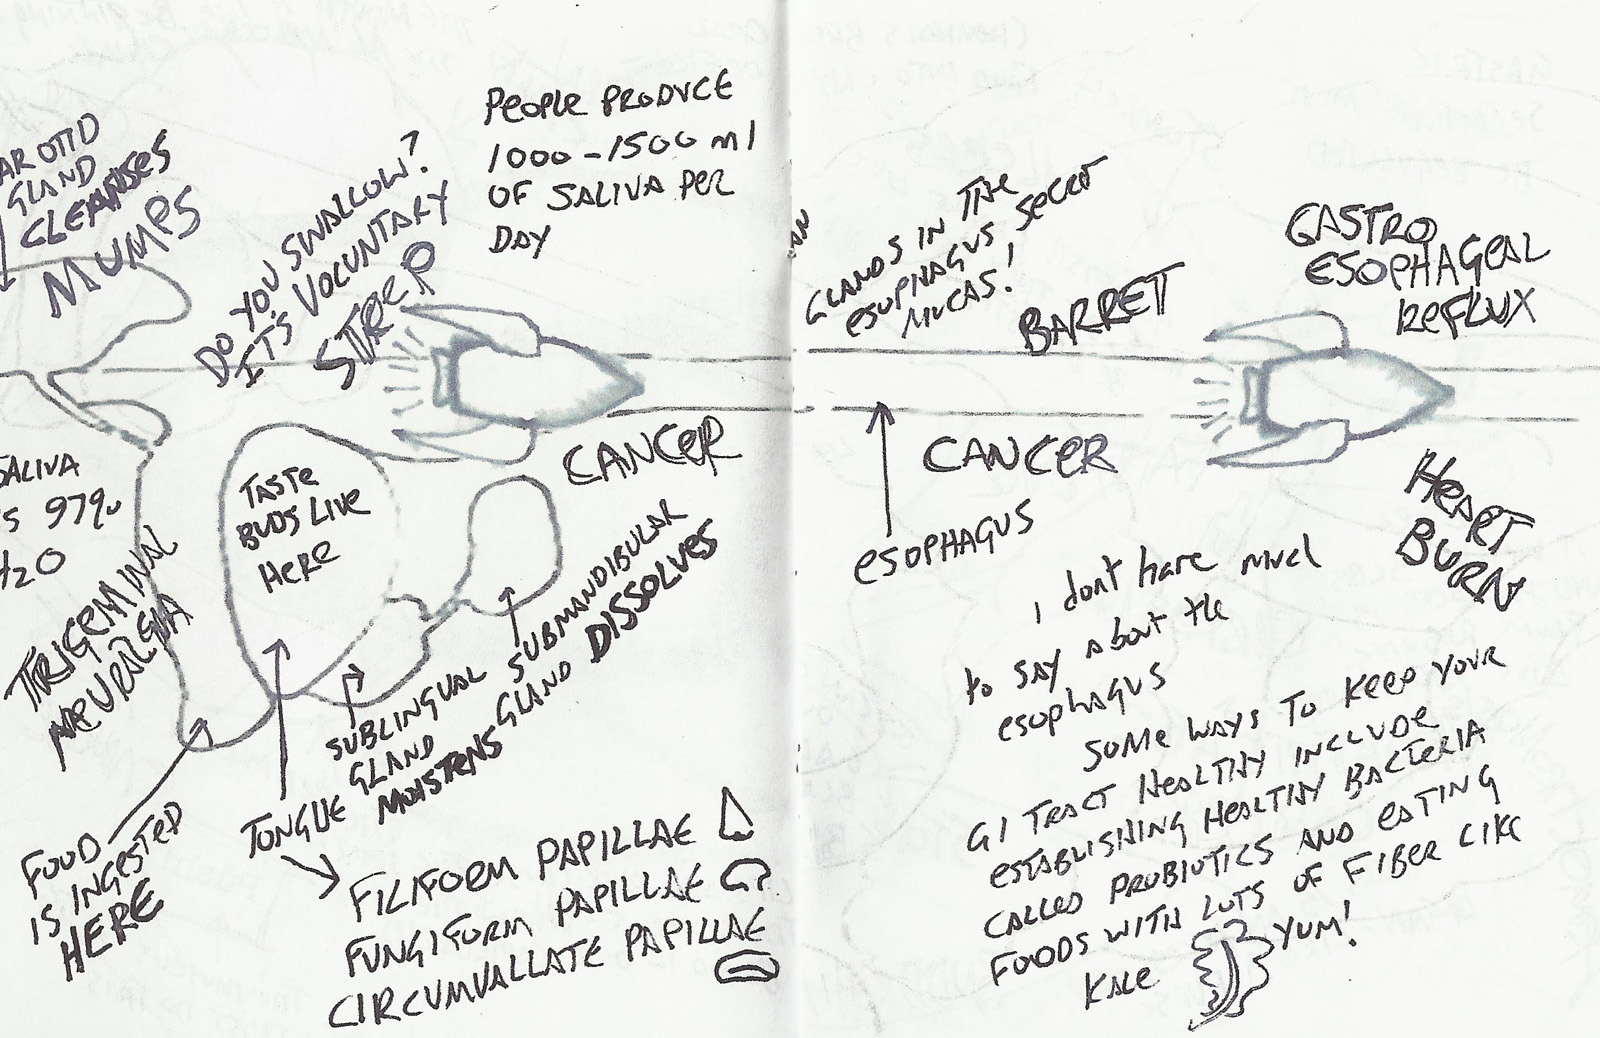 AROTID
GLAND
CLEANSES
MUMPS
DO YOU SWALLOW?
IT'S VOLUNTARY
STREP
PEOPLE PRODUCE
1000-1500 ml
OF SALIVA PER
DAY
CANCER
SALIVA
97%
H2O
TRIGEMINAL
NEURALGIA
TASTE
BUDS LIVE
HERE
SUBMANDIBULAR
GLAND DISSOLVES
SUBLINGUAL
GLAND
MOISTENS
FOOD
IS INGESTED
HERE
TONGUE
FILIFORM PAPILLAE
FUNGIFORM PAPILLAE
CIRCUMVALLATE PAPILLAE
GLANDS IN THE
ESOPHAGUS SECRET
MUCAS!
BARRETT
GASTRO
ESOPHAGEAL
REFLUX
CANCER
ESOPHAGUS
HEART
BURN
I dont have much
to say about the
esophagus
SOME WAYS TO KEEP YOUR
GI TRACT HEALTHY INCLUDE
ESTABLISHING HEALTHY BACTERIA
CALLED PROBIOTICS AND EATING
FOODS WITH LOTS OF FIBER LIKE
KALE YUM!